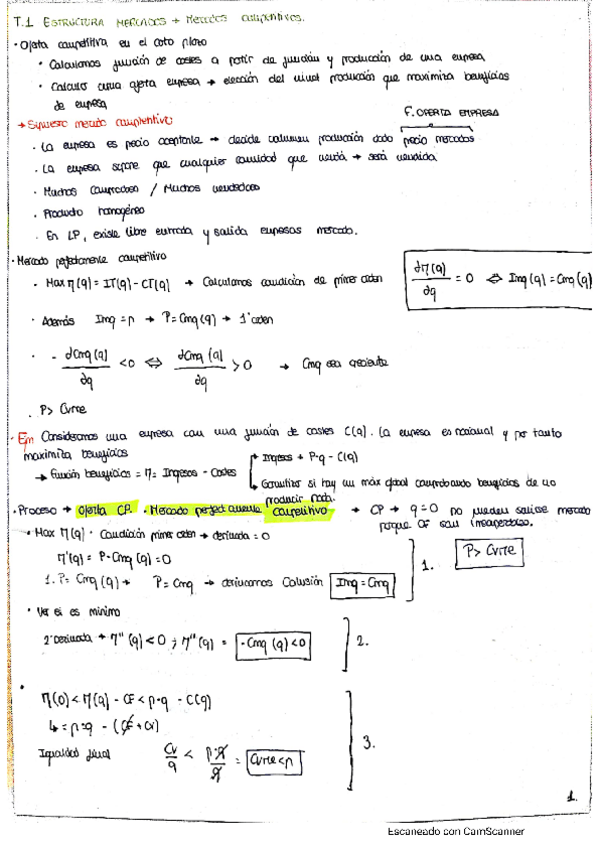 T.1 ESTRUCTURA MERCADOS → Mercados competitivos.
· Oferta competitiva en el corto plazo
· Calculamos función de costes a partir de función y producción de una empresa
· Calcular una oferta empresa → elección del nivel producción que maximiza beneficios
de empresa
F. OFERTA EMPRESA
→ Supuesto mercado competitivo:
· La empresa es precio aceptante → decide volumen producción dado precio mercados
· La empresa supone que cualquier cantidad que venda → será vendida
· Muchos compradores / Muchos vendedores
· Producto homogéneo
· En LP, existe libre entrada y salida empresas mercado.
· Mercado perfectamente competitivo
· Max η(q) = IT(q) - CT(q) → Calculamos condición de primer orden
∂η(q)/∂q = 0 ⇔ Img(q) = Cmg(q)
· Además Img = p → P = Cmg(q) → 1º orden
· - ∂Cmg(q)/∂q < 0 ⇔ ∂Cmg(q)/∂q > 0 → Cmg sea creciente
· P > Cvme
· Ejm Consideramos una empresa con una función de costes C(q). La empresa es racional y por tanto
maximiza beneficios
→ Ingresos + P·q - C(q)
→ Función beneficios = η = Ingresos - Costes
↳ Garantizar si hay un máx global comprobando beneficios de no
producir nada.
· Proceso → Oferta CP. · Mercado perfectamente competitivo → CP → q = 0 no pueden salirse mercado
porque CF son irrecuperables.
· Max η(q) · Condición primer orden → derivada = 0
η'(q) = P - Cmg(q) = 0
1. P = Cmg(q) → P = Cmg → derivamos Colusión Img = Cmg
1. P > Cvme
· Ver si es mínimo
2ª Derivada → η''(q) < 0 ; η''(q) = -Cmg(q) < 0
2.
η(0) < η(q) - CF < p·q - C(q)
↳ = p·q - (CF + CV)
Igualdad final Cv/q < p·q/q = Cvme < p
3.
1.
Escaneado con CamScanner